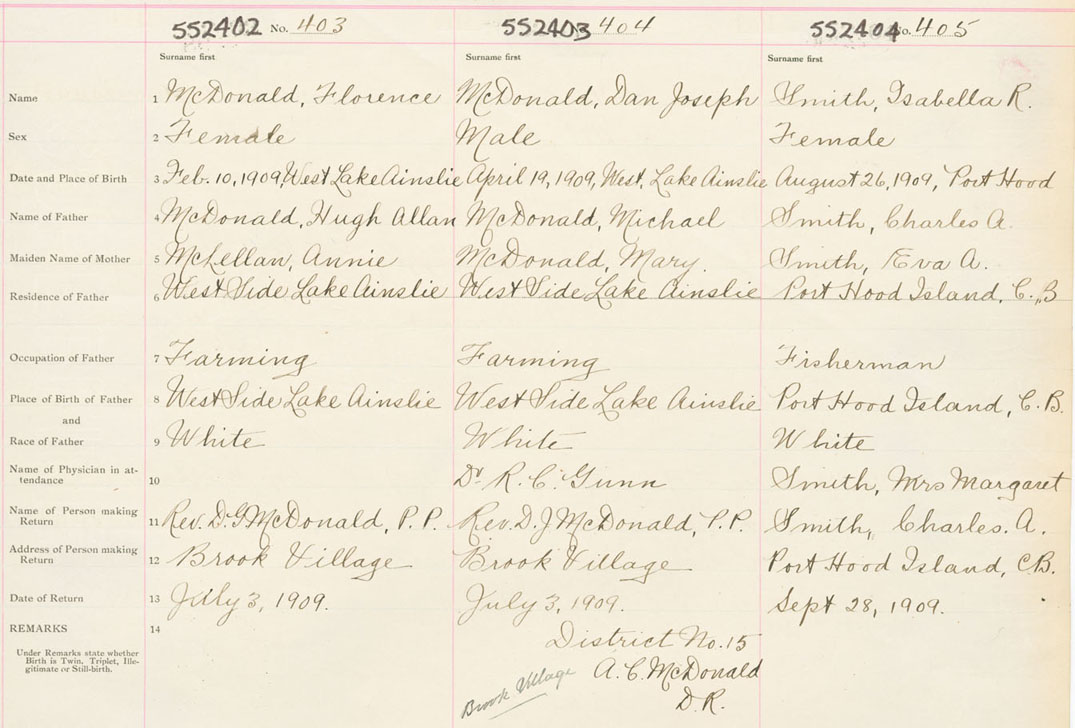 552402 No. 403 552403 404 552404 No. 405
Surname first Surname first Surname first
Name 1 McDonald, Florence McDonald, Dan Joseph Smith, Isabella R.
Sex 2 Female Male Female
Date and Place of Birth 3 Feb. 10, 1909, West Lake Ainslie April 19, 1909, West, Lake Ainslie August 26, 1909, Port Hood
Name of Father 4 McDonald, Hugh Allan McDonald, Michael Smith, Charles A.
Maiden Name of Mother 5 McLellan, Annie McDonald, Mary. Smith, Eva A.
Residence of Father 6 West Side Lake Ainslie West Side Lake Ainslie Port Hood Island, C.B
Occupation of Father 7 Farming Farming Fisherman
Place of Birth of Father 8 West Side Lake Ainslie West Side Lake Ainslie Port Hood Island, C.B.
and
Race of Father 9 White White White
Name of Physician in at-
tendance 10 Dr R. C. Gunn Smith, Mrs Margaret
Name of Person making
Return 11 Rev. D. G McDonald, P. P. Rev. D. J McDonald, P. P. Smith, Charles. A.
Address of Person making
Return 12 Brook Village Brook Village Port Hood Island, C.B.
Date of Return 13 July 3, 1909. July 3, 1909. Sept 28, 1909.
REMARKS 14
Under Remarks state whether
Birth is Twin, Triplet, Ille-
gitimate or Still-birth.
District No. 15
A. C. McDonald
D. R.
Brook Village